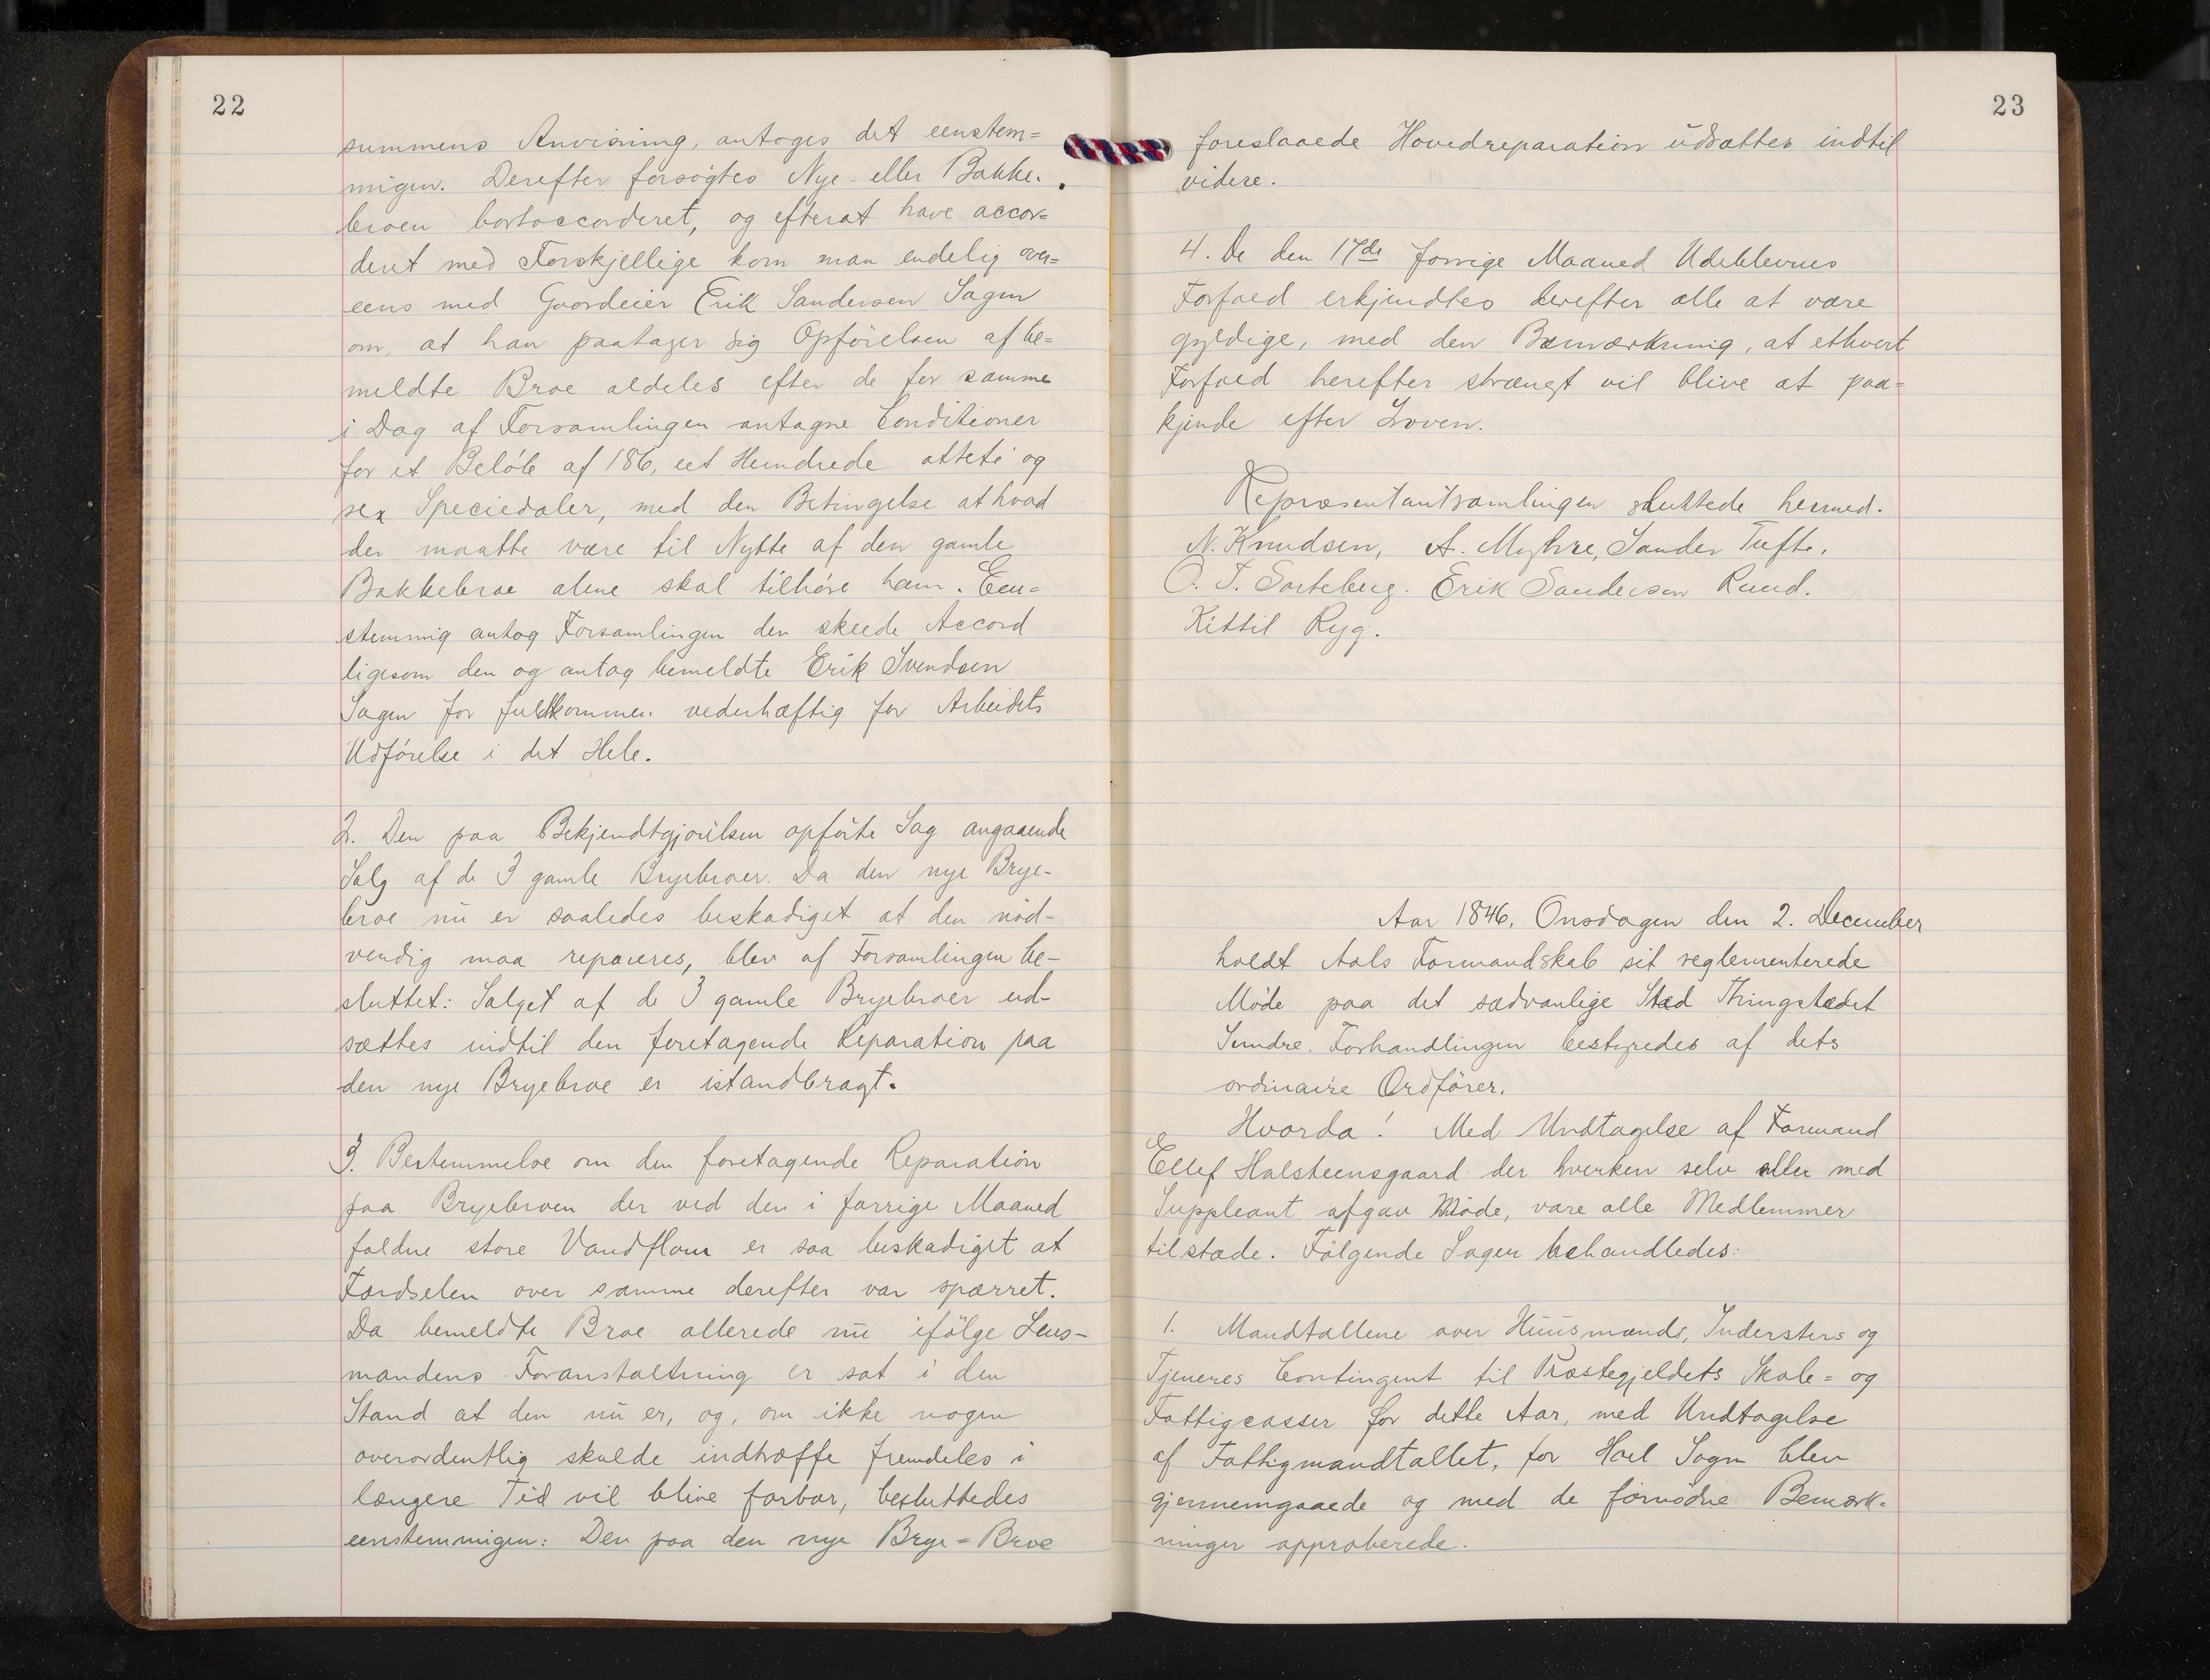 22
summens Anvisning, antoges det eenstem=
migen. Derefter forsøgtes Nye- eller Bakke-
broen bortaccorderet, og efterat have accor=
deret med Forskjellige kom man endelig over=
eens med Gaardeier Erik Sandersen Sagen
om, at han paatager sig Opførelsen af be=
meldte Broe aldeles efter de for samme
i Dag af Forsamlingen antagne Conditioner
for et Beløb af 186, eet Hundrede otteti og
sex Speciedaler, med den Betingelse at hvad
der maatte være til Nytte af den gamle
Bakkebroe alene skal tilhøre ham. Een=
stemmig antog Forsamlingen den skeede Accord
ligesom den og antog bemeldte Erik Svendsen
Sagen for fuldkommen vederhæftig for Arbeidets
Udførelse i det Hele.
2. Den paa Bekjendtgjørelsen opførte Sag angaaende
Salg af de 3 gamle Bryebroer. Da den nye Brye-
broe nu er saaledes beskadiget at den nød-
vendig maa repareres, blev af Forsamlingen be-
sluttet: Salget af de 3 gamle Bryebroer ud-
sættes indtil den foretagende Reparation paa
den nye Bryebroe er istandbragt.
3. Bestemmelse om den foretagende Reparation
paa Bryebroen der ved den i forrige Maaned
faldne store Vandflom er saa beskadiget at
Færdselen over samme derefter var spærret.
Da bemeldte Broe allerede nu ifølge Lens-
mandens Foranstaltning er sat i den
Stand at den nu er, og, om ikke nogen
overordentlig skulde indtræffe fremdeles i
længere Tid vil blive farbar, besluttedes
eenstemmigen: Den paa den nye Brye=Broe
23
foreslaaede Hovedreparation udsættes indtil
videre.
4. De den 17de forrige Maaned Udeblevnes
Forfald erkjendtes derefter alle at være
gyldige, med den Bemærkning, at ethvert
Forfald herefter strængt vil blive at paa=
kjende efter Loven.
Repræsentantsamlingen sluttede hermed.
N. Knudsen, A. Myhre, Sander Tufte,
O. T. Sorteberg. Erik Sandersen Ruud.
Kittil Ryg.
Aar 1846, Onsdagen den 2. December
holdt Aals Formandskab sit reglementerede
Møde paa det sædvanlige Stæd Thingstædet
Sundre. Forhandlingen bestyredes af dets
ordinaire Ordfører.
Hvorda! Med Undtagelse af Formand
Ellef Halsteensgaard der hverken selv eller med
Suppleant afgav Møde, vare alle Medlemmer
tilstæde. Følgende Sager behandledes:
1. Mandtallene over Huusmænds, Indersters og
Tjeneres Contingent til Præstegjeldets Skole= og
Fattigcasser for dette Aar, med Undtagelse
af Fattigmandtallet, for Hoel Sogn blev
gjennemgaaede og med de fornødne Bemærk-
ninger approberede.